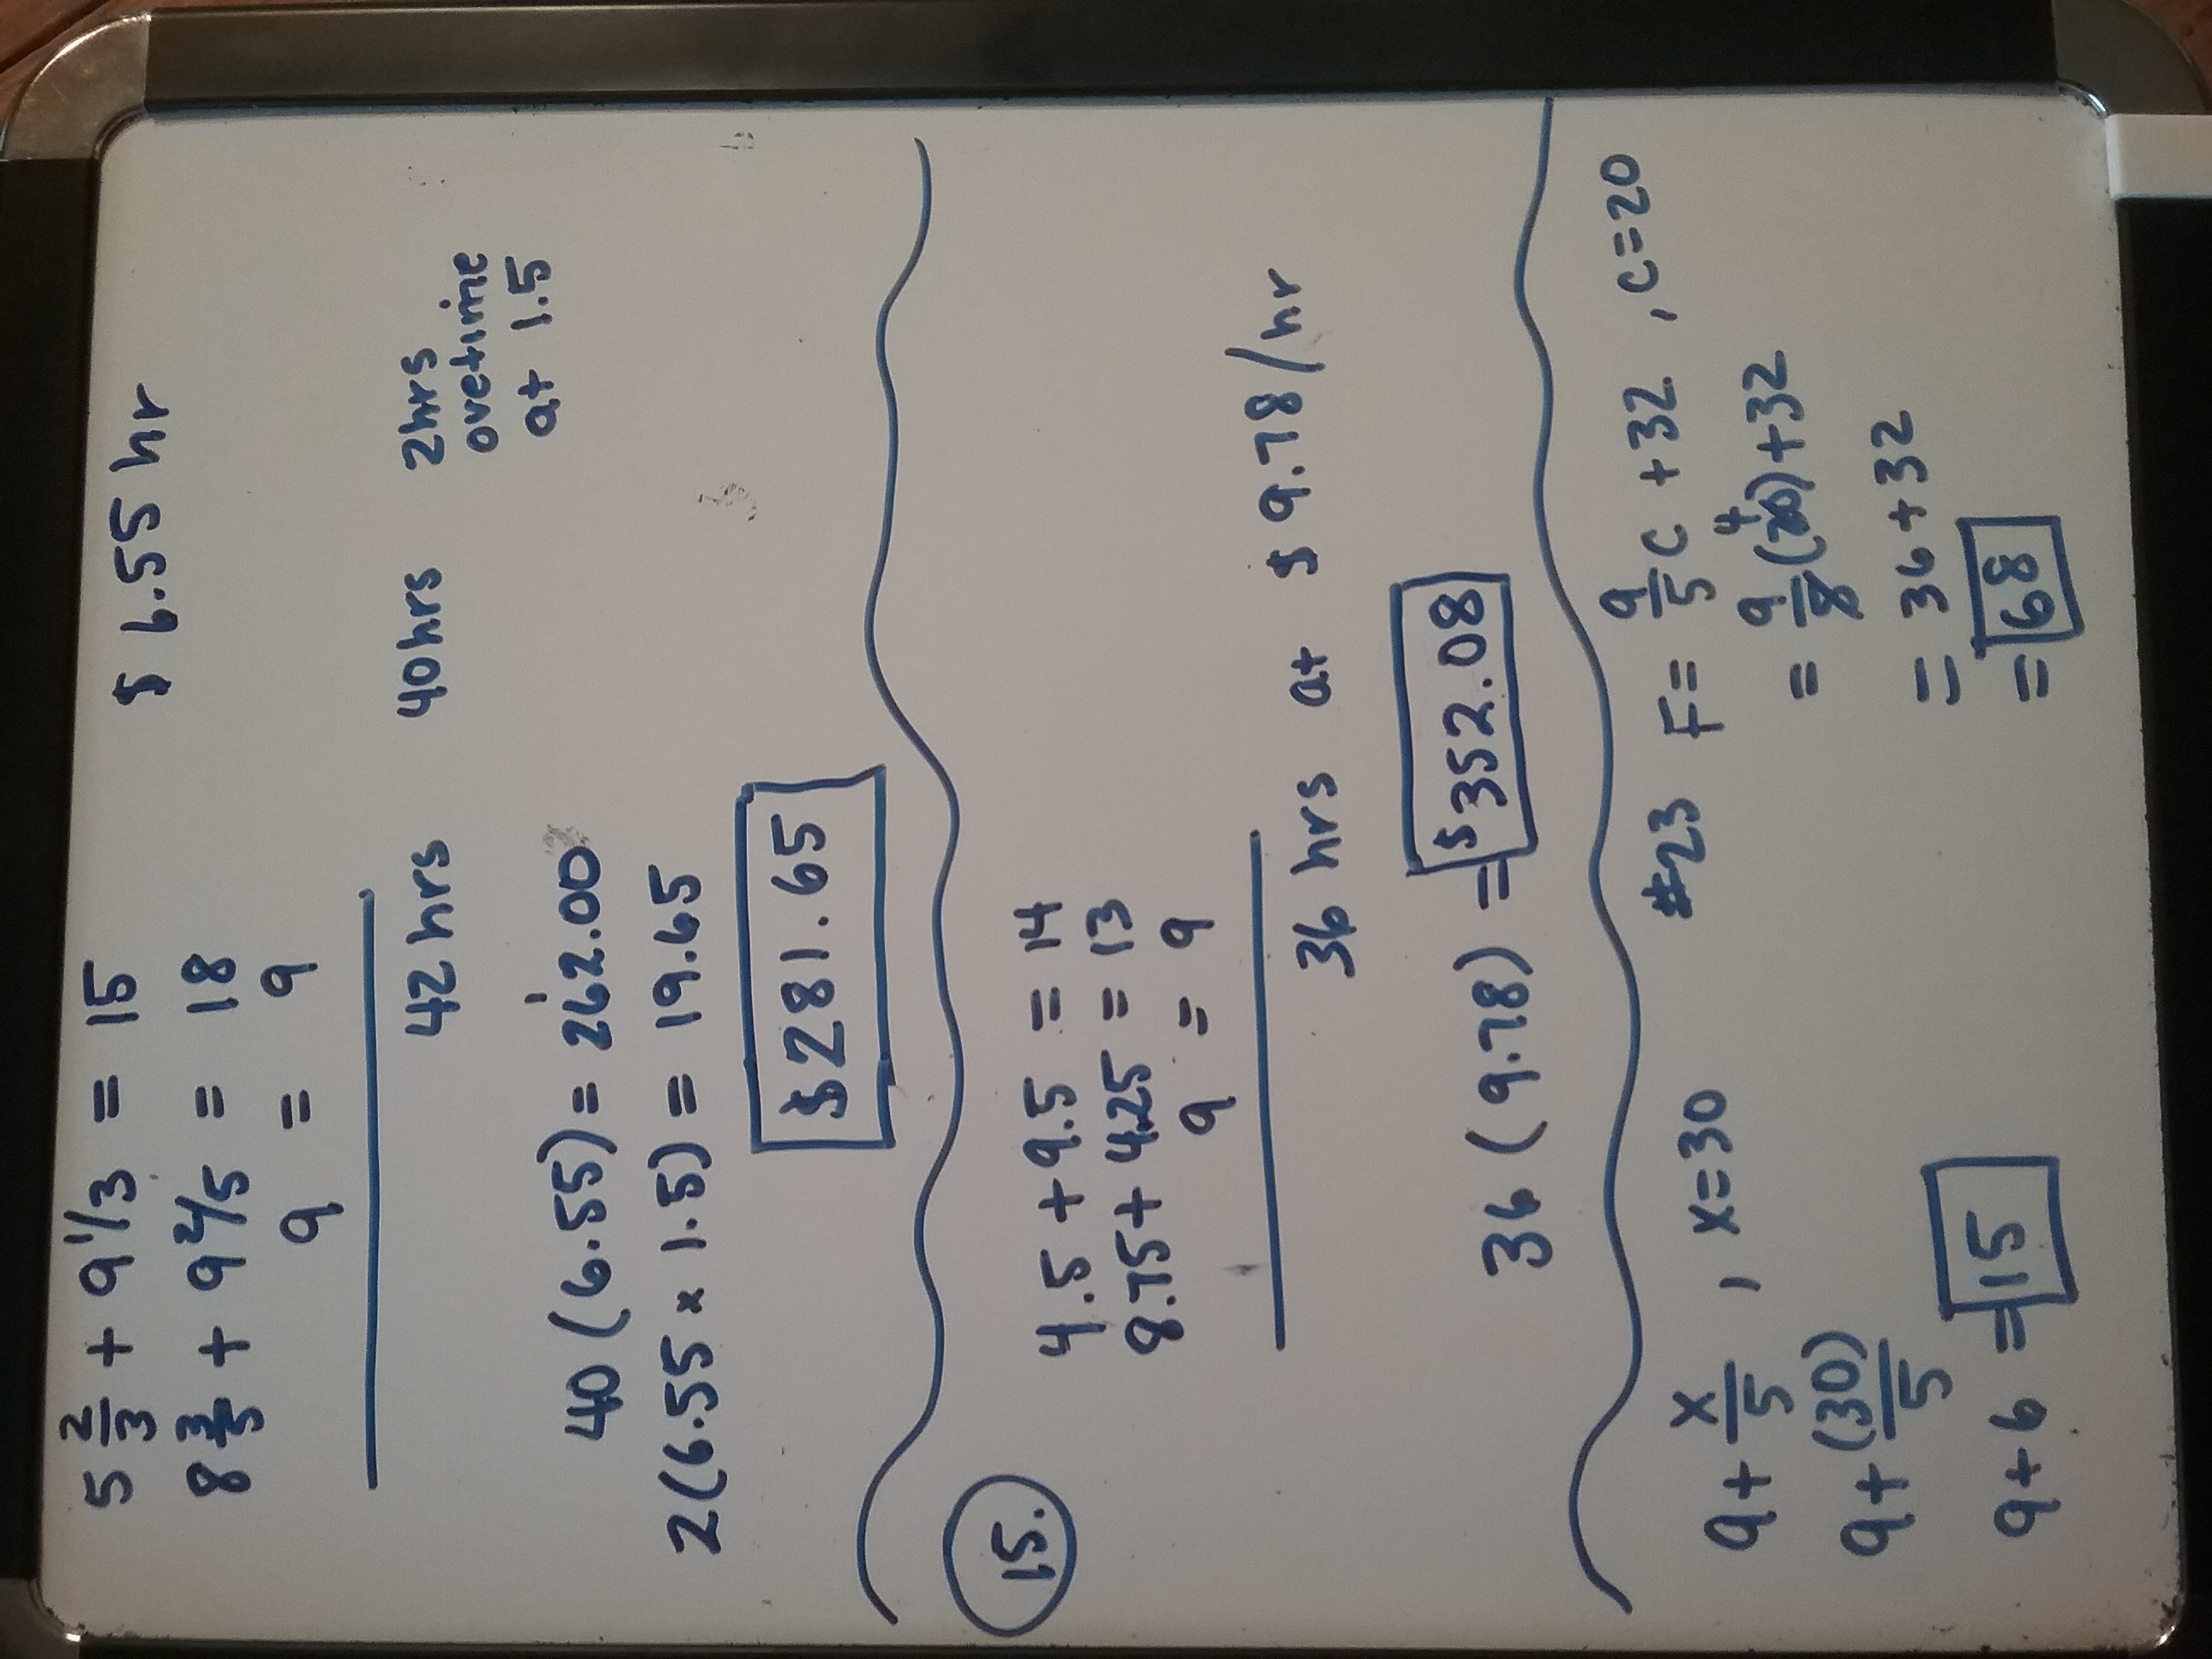 5 2/3 + 9 1/3 = 15 $ 6.55 hr
8 3/5 + 9 2/5 = 18
9 = 9
42 hrs 40 hrs 2 hrs
ovetime
at 1.5
40 (6.55) = 262.00
2 (6.55 x 1.5) = 19.65
$281.65
15.
4.5 + 9.5 = 14
8.75 + 4.25 = 13
9 = 9
36 hrs at $ 9.78/hr
36 (9.78) = $352.08
9 + x/5 , x=30
9 + (30)/5
9 + 6 = 15
#23 F = 9/5 C + 32 , C=20
= 9/5 (20) 4 + 32
= 36 + 32
= 68